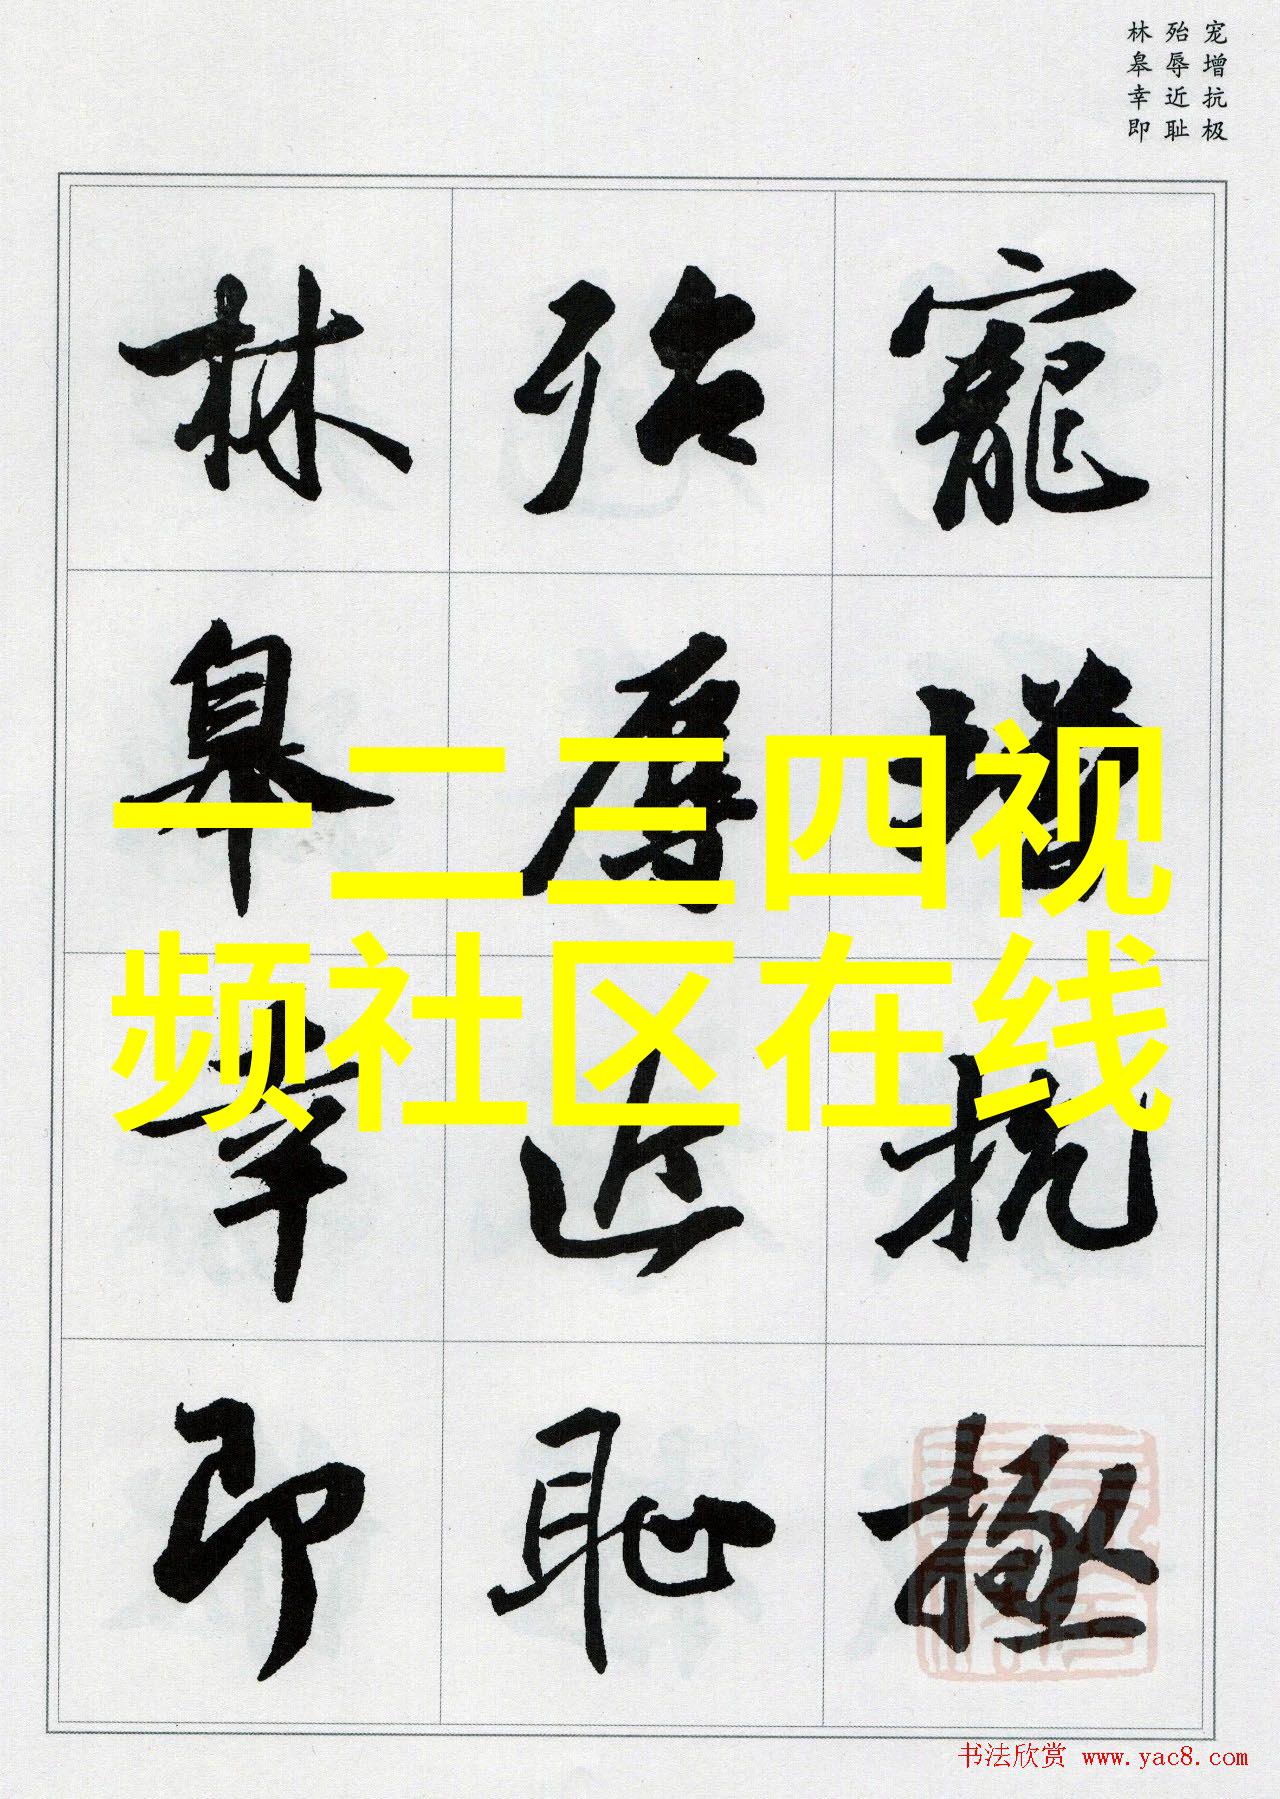 宠增抗极
殆辱近耻
林皋幸即
寵增抗極
殆辱近恥
林皋幸即
一二三四视
频社区在线
书法欣赏 www.yac8.com